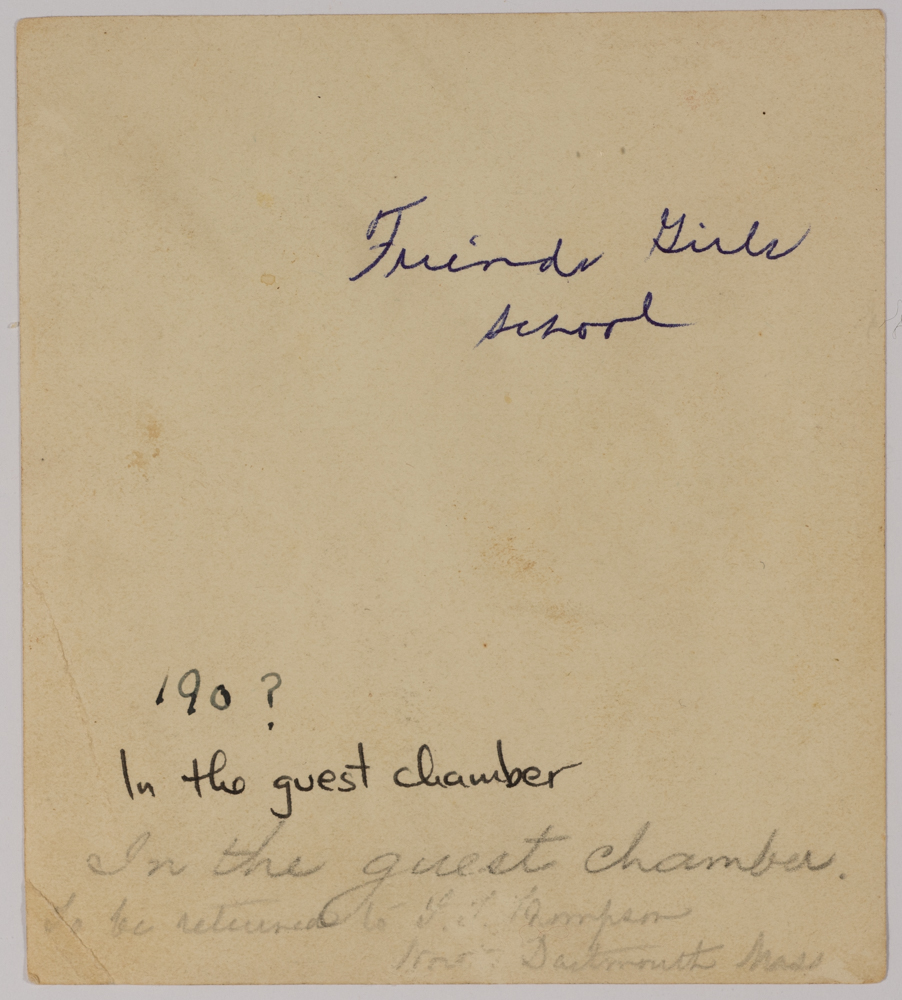 Friends Girls
school
190?
In the guest chamber
In the guest chamber.
To be returned to Thompson
Dartmouth Mass